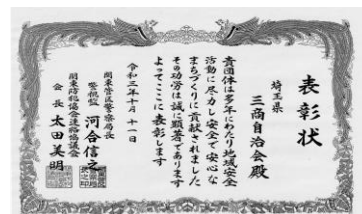 表彰状
埼玉県
三商自治会殿
貴団体は多年にわたり地域安全
活動に尽力し安全で安心な
まちづくりに貢献されました
その功労は誠に顕著であります
よってここに表彰します
令和三年十月十一日
関東管区警察局長
警視監 河合信之
関東防犯協会連絡協議会
会長 太田美明